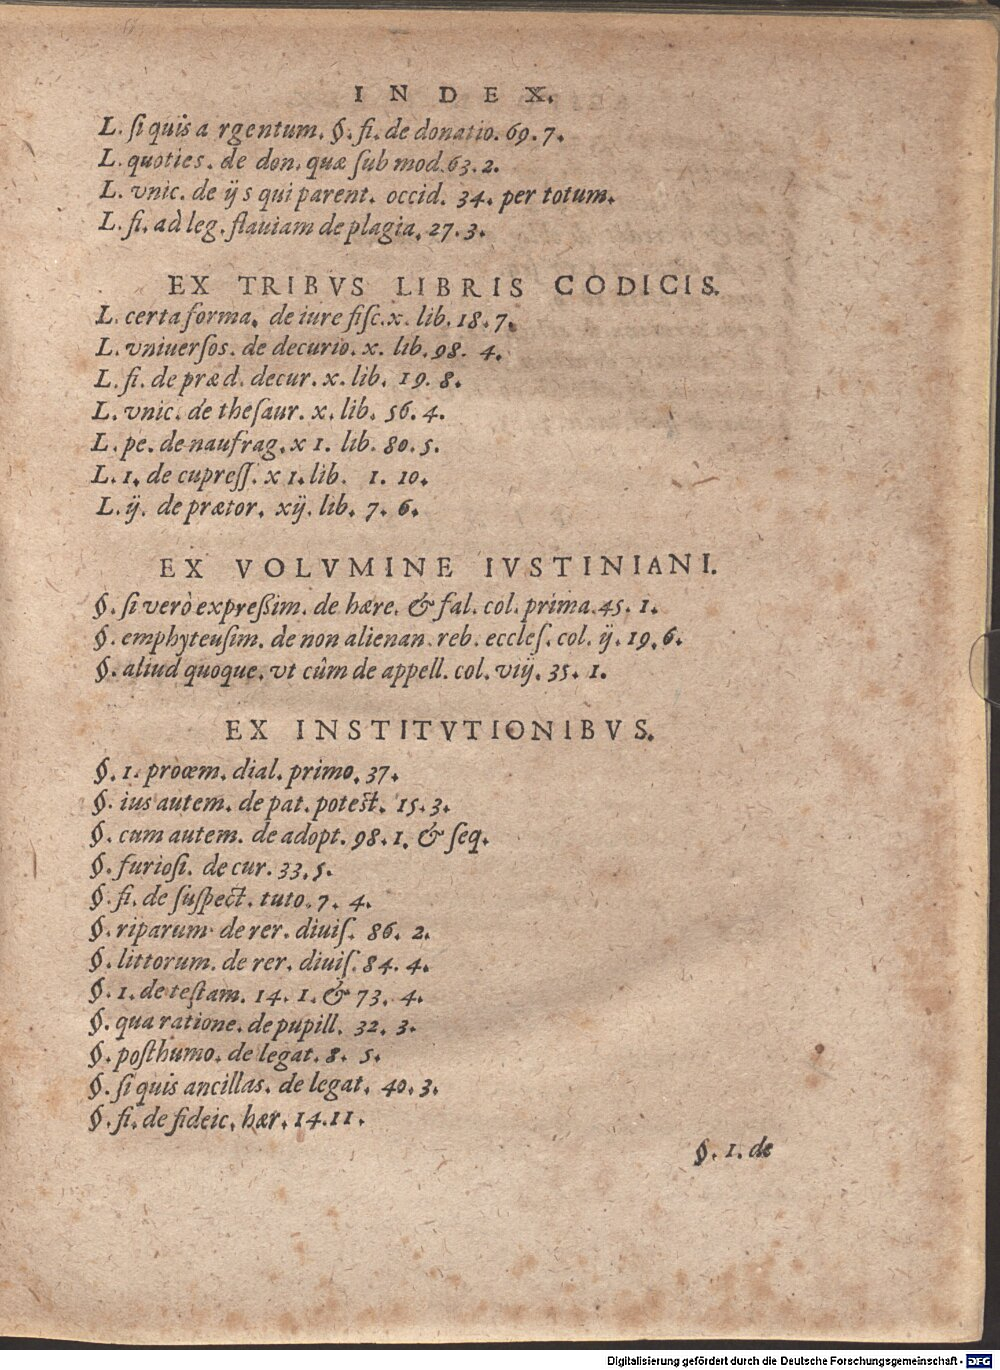 INDEX.
L. ſi quis a rgentum. §. fi. de donatio. 69. 7.
L. quoties. de don. quæ ſub mod. 63. 2.
L. vnic. de ijs qui parent. occid. 34. per totum.
L. fi. ad leg. flauiam de plagia. 27. 3.
EX TRIBVS LIBRIS CODICIS.
L. certa forma. de iure fiſc. x. lib. 18. 7.
L. vniuerſos. de decurio. x. lib. 98. 4.
L. fi. de præd. decur. x. lib. 19. 8.
L. vnic. de theſaur. x. lib. 56. 4.
L. pe. de naufrag. x1. lib. 80. 5.
L. 1. de cupreſſ. x1. lib. 1. 10.
L. ij. de prætor. xij. lib. 7. 6.
EX VOLVMINE IVSTINIANI.
§. ſi verò expreßim. de hære. & fal. col. prima. 45. 1.
§. emphyteuſim. de non alienan. reb. eccleſ. col. ij. 19. 6.
§. aliud quoque. vt cûm de appell. col. viij. 35. 1.
EX INSTITVTIONIBVS.
§. 1. proœm. dial. primo. 37.
§. ius autem. de pat. poteſt. 15. 3.
§. cum autem. de adopt. 98. 1. & ſeq.
§. furioſi. de cur. 33. 5.
§. fi. de ſuſpect. tuto. 7. 4.
§. riparum. de rer. diuiſ. 86. 2.
§. littorum. de rer. diuiſ. 84. 4.
§. 1. de teſtam. 14. 1. & 73. 4.
§. qua ratione. de pupill. 32. 3.
§. poſthumo. de legat. 8. 5.
§. ſi quis ancillas. de legat. 40. 3.
§. fi. de fideic. hær. 14. 11.
§. 1. de
Digitalisierung gefördert durch die Deutsche Forschungsgemeinschaft - DFG